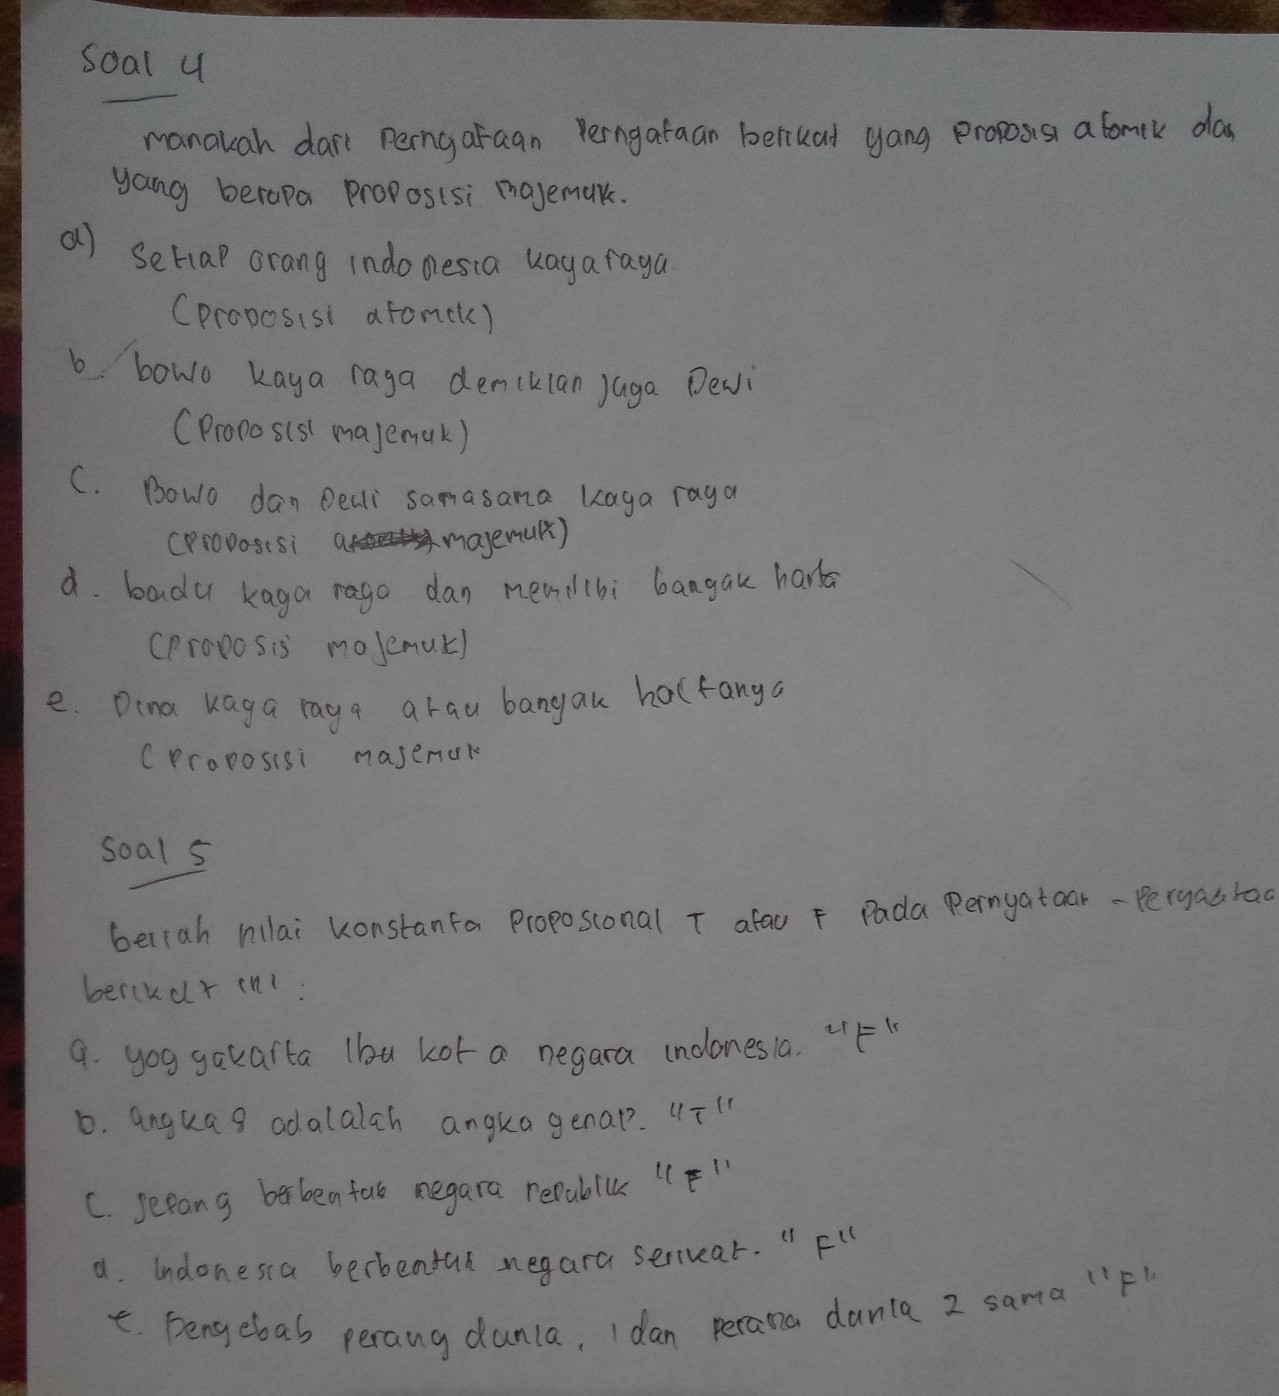 Soal 4
manakah dari Perngataan Perngataan berikut yang proposisi atomik dan
yang berupa proposisi majemuk.
a) Setiap orang indonesia kayaraya.
(proposisi atomik)
b. bowo kaya raya demikian juga Dewi
(Proposisi majemuk)
C. Bowo dan Dewi samasama kaya raya
(Proposisi majemuk)
d. badu kaya raya dan memiliki banyak harta
(Proposis majemuk)
e. Dina kaya raya atau banyak hartanya
(Proposisi majemuk
Soal 5
berrah nilai konstanta Proposional T atau F Pada Pernyataan -
berikut ini :
a. yoggakarta Ibu kota negara indonesia. "F"
b. angka 8 adalalah angka genap. "T"
C. Jepang berbentuk negara republik "F"
d. Indonesia berbentuk negara serikat. "F"
e. Pengebab perang dunia, 1 dan perang dunia 2 sama "F"